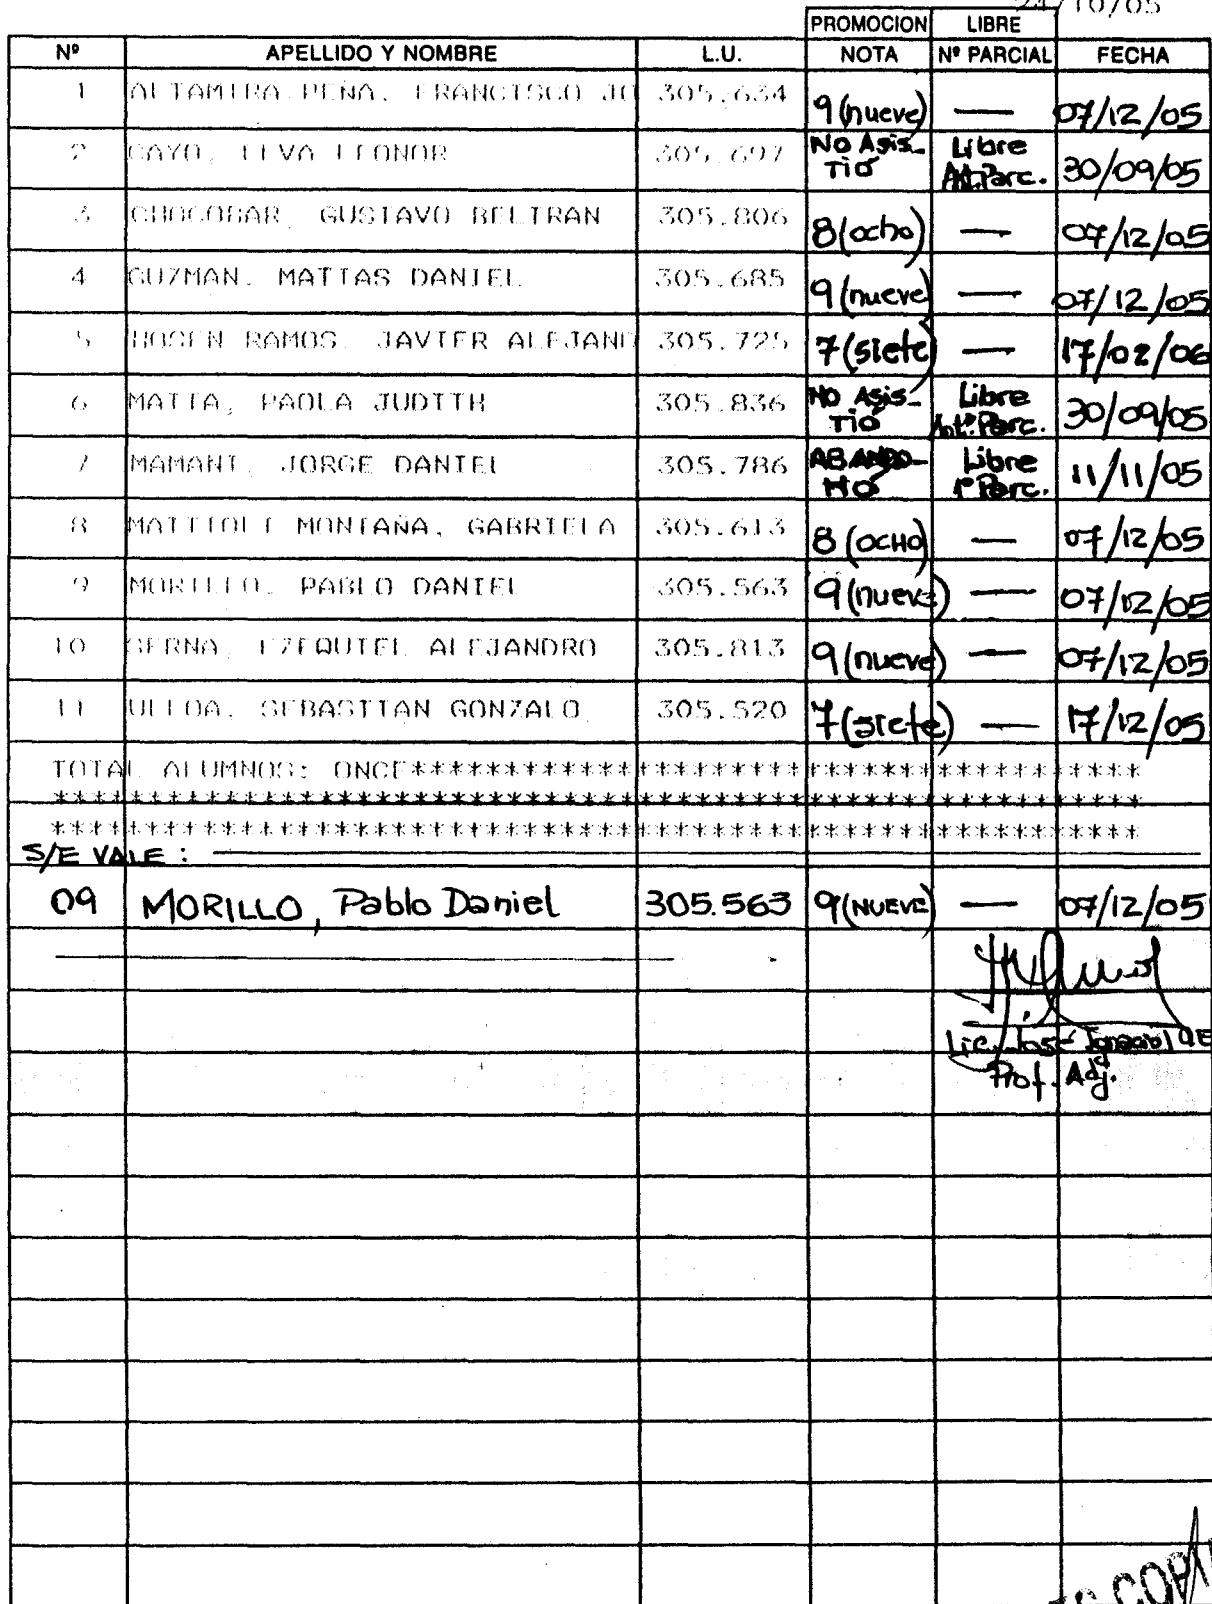 24/10/05
PROMOCION LIBRE
Nº APELLIDO Y NOMBRE L.U. NOTA Nº PARCIAL FECHA
1 ALTAMIRA PEÑA, FRANCISCO JO 305.634 9 (nueve) — 07/12/05
2 CAYO, ELVA LEONOR 305.697 No Asis- Tió Libre Ant. Parc. 30/09/05
3 CHOCOBAR, GUSTAVO BELTRAN 305.806 8 (ocho) — 07/12/05
4 GUZMAN, MATIAS DANIEL 305.685 9 (nueve) — 07/12/05
5 HOSEN RAMOS, JAVIER ALEJAND 305.725 7 (siete) — 17/02/06
6 MATIA, PAOLA JUDITH 305.836 No Asis- Tió Libre Ant. Parc. 30/09/05
7 MAMANI, JORGE DANIEL 305.786 ABANDO- NÓ Libre 1º Parc. 11/11/05
8 MATTIOLI MONTAÑA, GABRIELA 305.613 8 (OCHO) — 07/12/05
9 MORILLO, PABLO DANIEL 305.563 9 (nueve) — 07/12/05
10 SERNA, EZEQUIEL ALEJANDRO 305.813 9 (nueve) — 07/12/05
11 ULLOA, SEBASTIAN GONZALO 305.520 7 (siete) — 17/12/05
TOTAL ALUMNOS: ONCE**********************************************
*********************************************************
*********************************************************
S/E VALE :
09 MORILLO, Pablo Daniel 305.563 9 (NUEVE) — 07/12/05
Lic. José
Prof. Adj.
ES COPIA